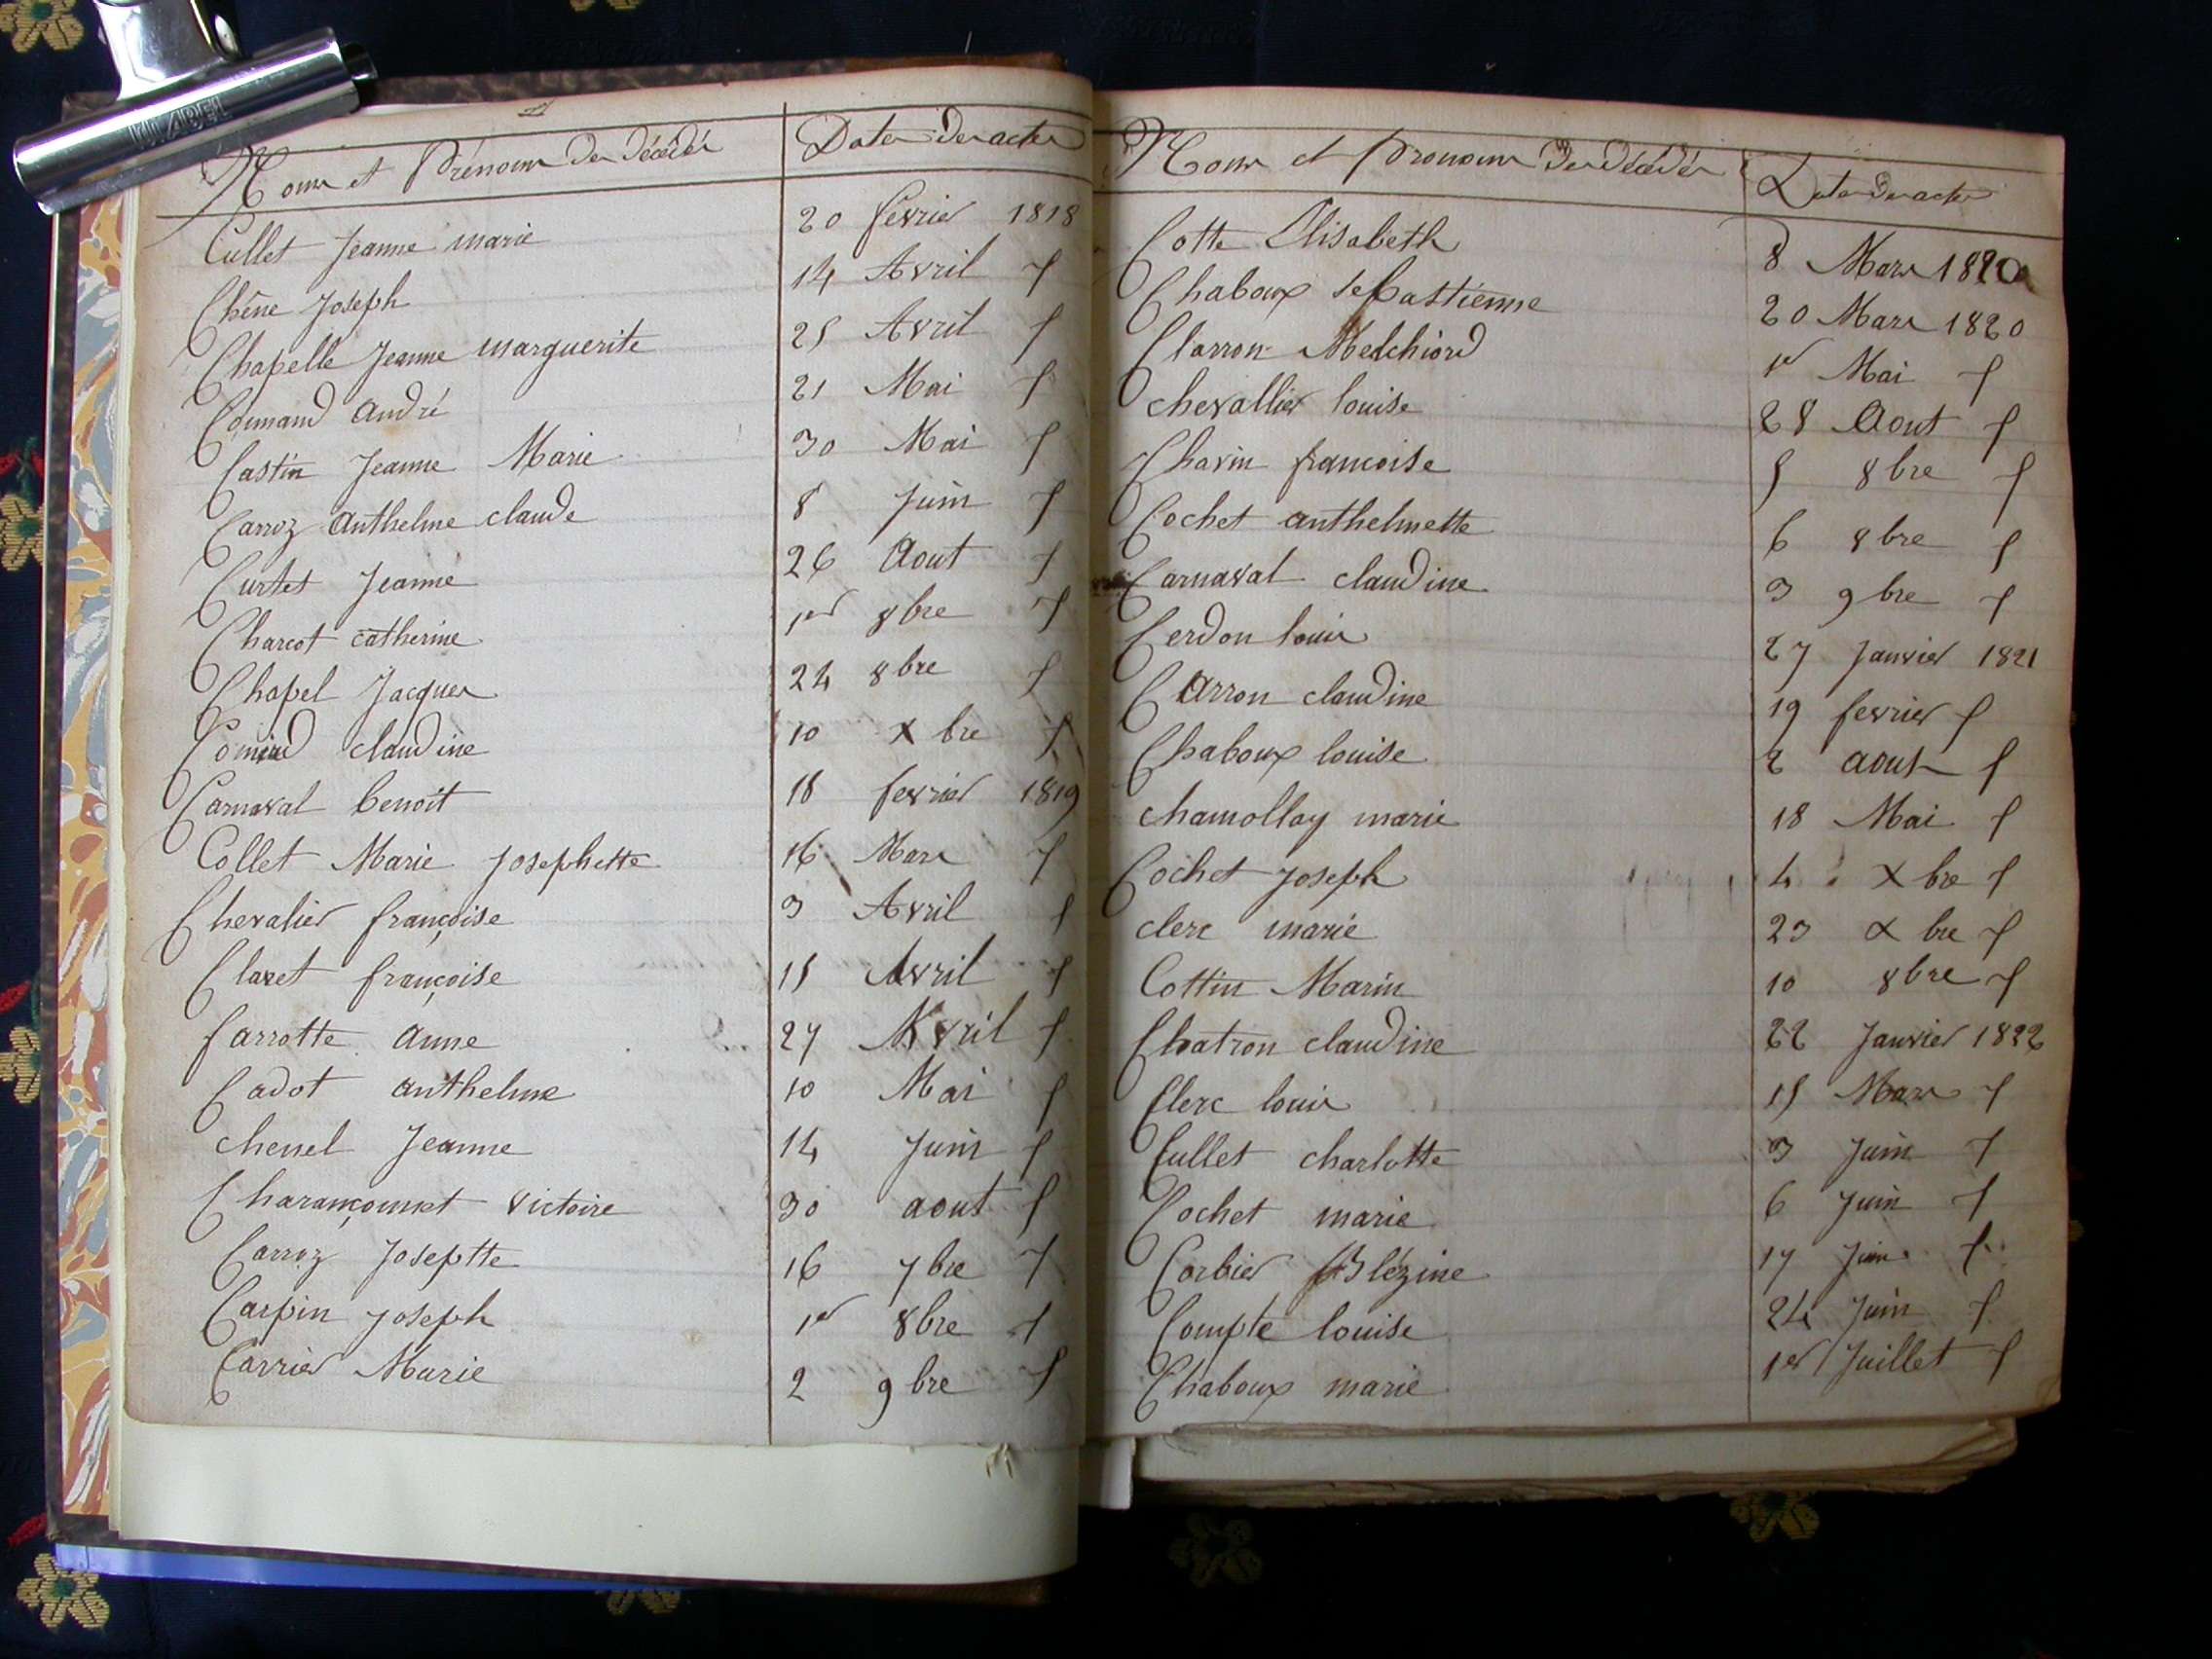 Noms et Prénoms des décédés Dates des actes
Cullet Jeanne marie 20 fevrier 1818
Chêne Joseph 14 Avril f
Chapelle Jeanne marguerite 25 Avril f
andré 21 Mai f
Castin Jeanne Marie 30 Mai f
Carroz Anthelme claude 8 Juin f
Curtet Jeanne 26 Aout f
Charcot catherine 1er 8bre f
Chapel Jacques 24 8bre f
claudine 10 Xbre f
Carnaval benoit 18 fevrier 1819
Collet Marie Josephette 16 Mars f
Chevalier françoise 3 Avril f
Claret françoise 15 Avril f
Carrotte anne 27 Avril f
Cadot anthelme 10 Mai f
chenel Jeanne 14 Juin f
victoire 30 aout f
Carroz Joseptte 16 7bre f
Carpin Joseph 1er 8bre f
Carrier Marie 2 9bre f
Noms et Prenoms des décédés Dates des actes
Cotte Elisabeth 8 Mars 1820
Chaboux sebastienne 20 Mars 1820
Clarron Melchiord 1er Mai f
chevallier louise 28 Aout f
Chavin francoise 5 8bre f
Cochet anthelmette 6 8bre f
Carnaval claudine 3 9bre f
Cerdon louis 27 Janvier 1821
Carron claudine 19 fevrier f
Chaboux louise 2 aout f
chamollay marie 18 Mai f
Cochet Joseph 4 Xbre f
clerc marie 23 Xbre f
Cottin Marin 10 8bre f
Chatron claudine 22 Janvier 1822
Clerc louis 15 Mars f
Cullet charlotte 3 Juin f
Cochet marie 6 Juin f
Corbier Blézine 17 Juin f
Compte louise 24 Juin f
Chaboux marie 1er Juillet f